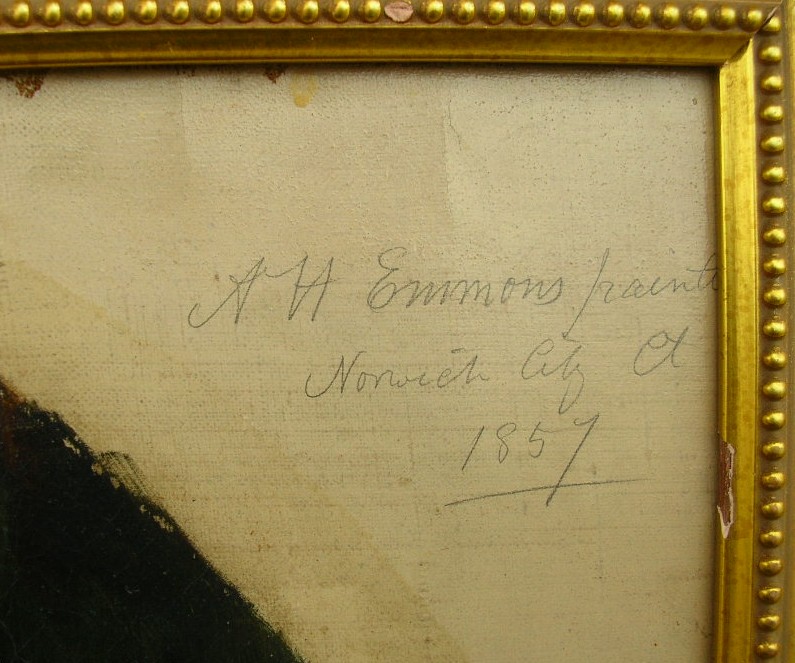 A H Emmons paint
Norwich City Ct
1857